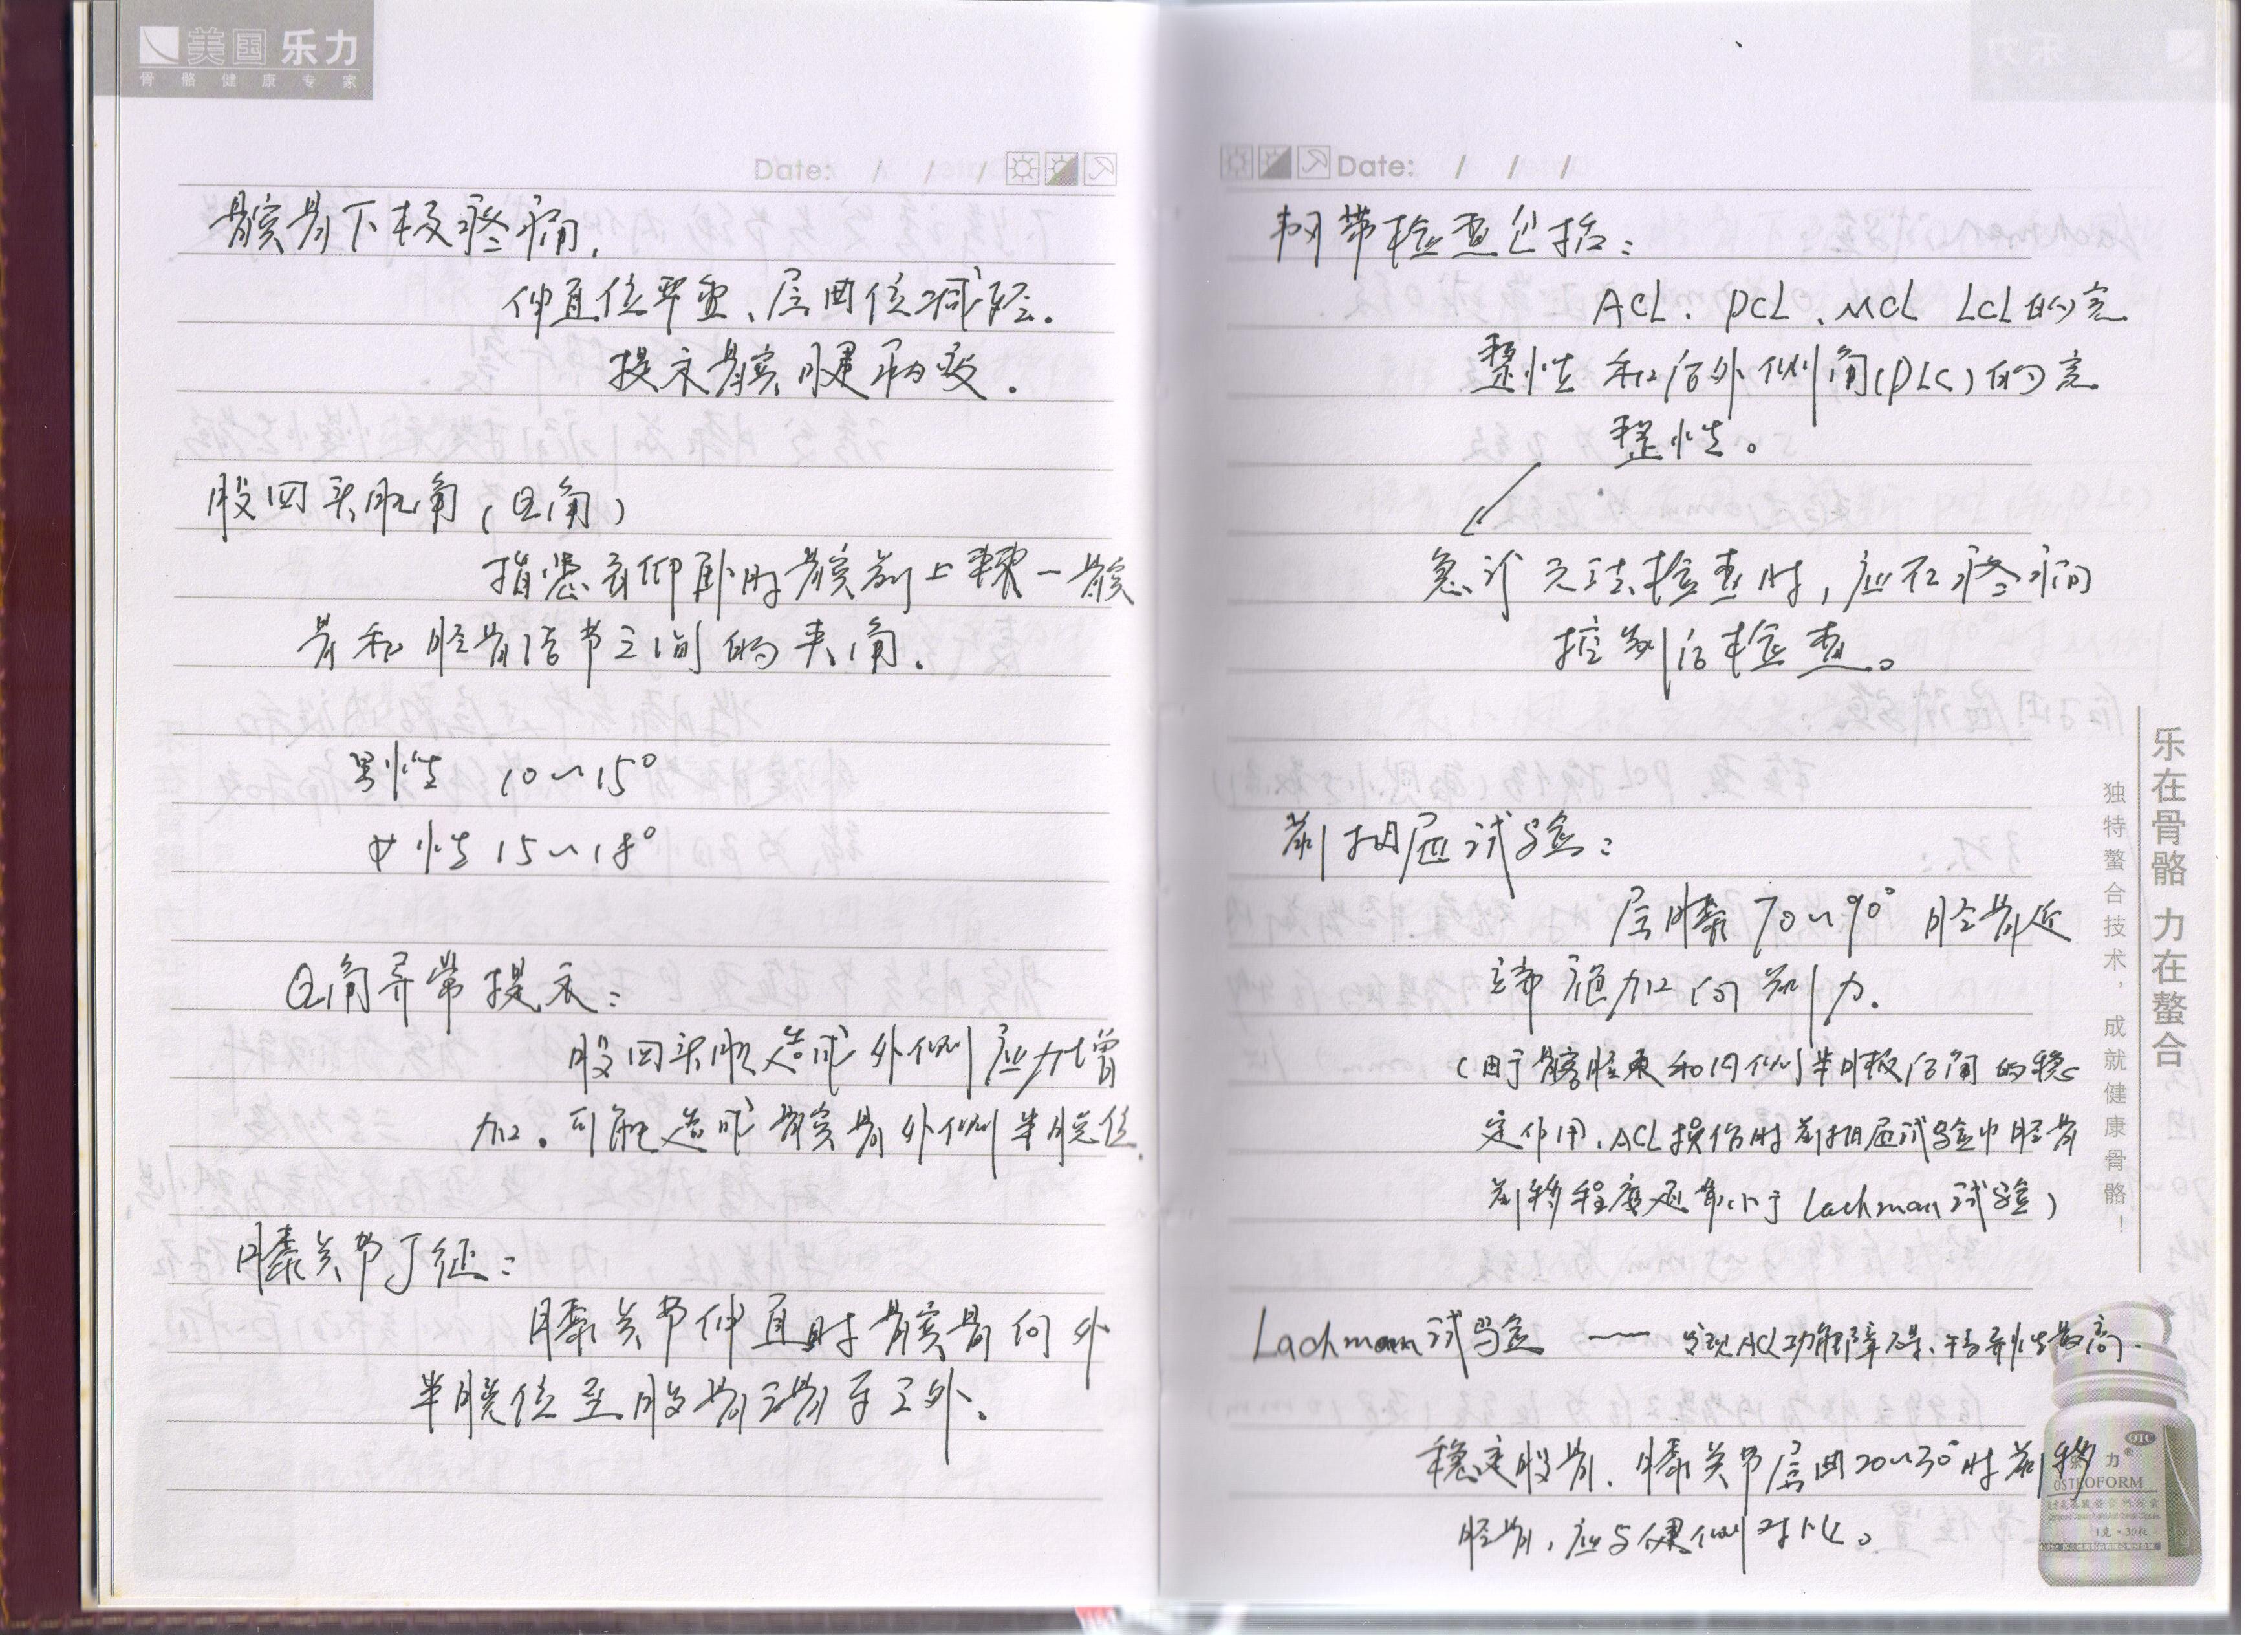 美国乐力
骨骼健康专家
Date: / / /
髌骨下极疼痛,
伸直位严重、屈曲位减轻.
提示髌腱病变.
股四头肌角(Q角)
指患者仰卧时髂前上棘—髌
骨和胫骨结节之间的夹角.
男性 10~15°
女性 15~18°
Q角异常提示:
股四头肌造成外侧应力增
加.可能造成髌骨外侧半脱位.
膝关节J征:
膝关节伸直时髌骨向外
半脱位至股骨滑车之外.
Date: / / /
韧带检查包括:
ACL、PCL、MCL LCL的完
整性和后外侧角(PLC)的完
整性。
急诊无法检查时,应在疼痛
控制后检查。
前抽屉试验:
屈膝70~90° 胫骨近
端施加向前力.
(由于髂胫束和内侧半月板后角的稳
定作用,ACL损伤时前抽屉试验中胫骨
前移程度通常小于Lachman试验)
Lachman试验 — 发现ACL功能障碍、特异性最高.
稳定股骨.膝关节屈曲20~30°时前移
胫骨,应与健侧对比。
乐在骨骼 力在螯合
独特螯合技术,成就健康骨骼!
OTC
乐力®
OSTEOFORM
1克×30粒